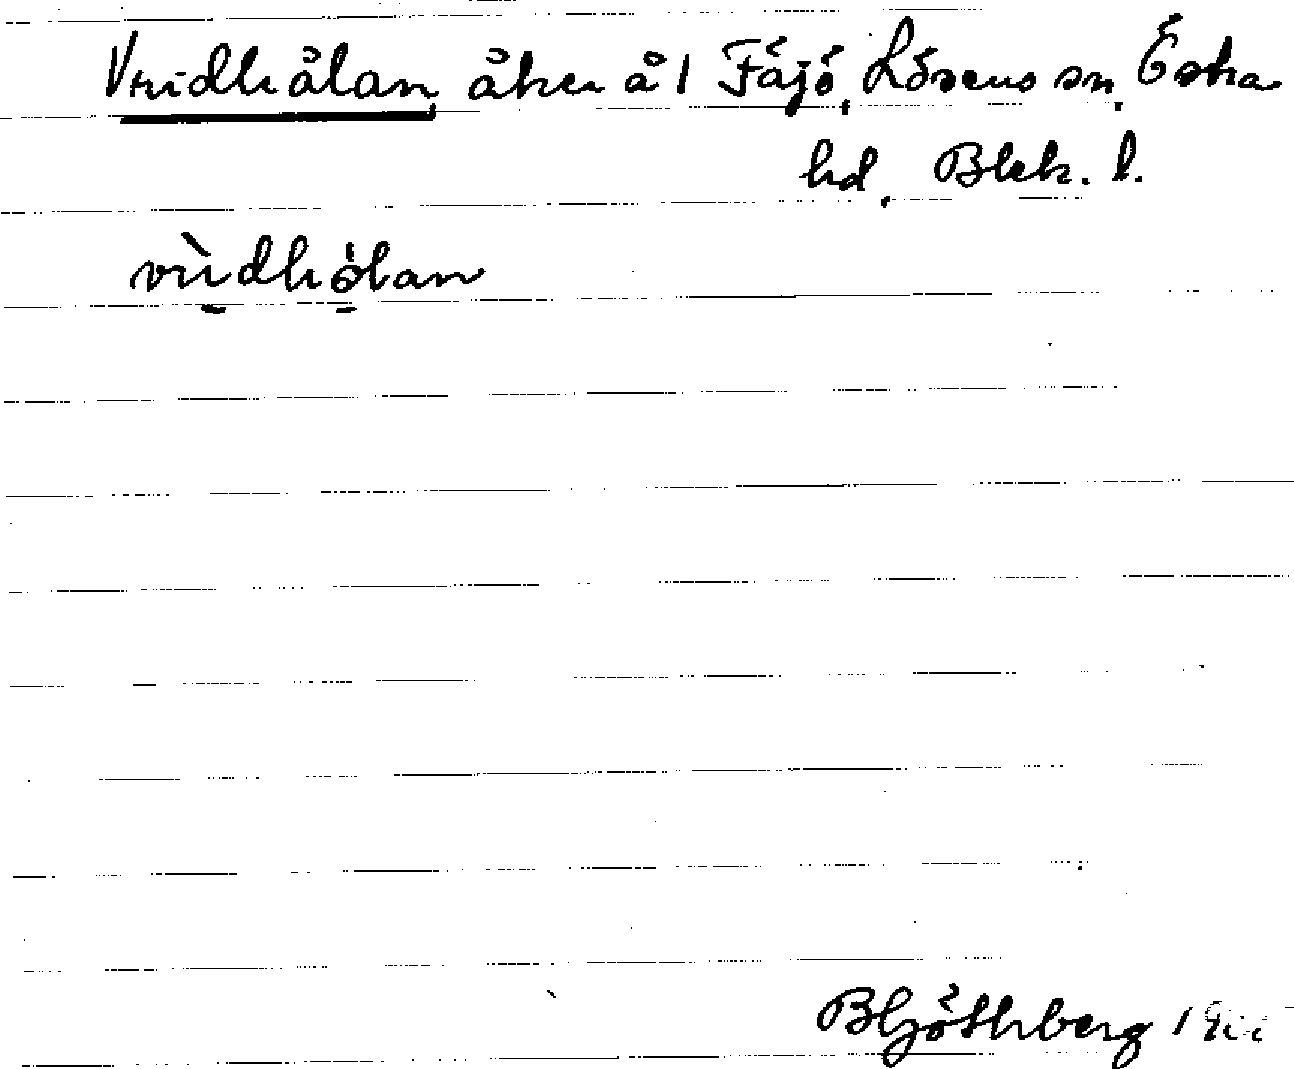 Vridhålan, åker å 1 Fäjö, Lösens sn, Östra
hd, Blek. l.
vrìdhólan
BGöthberg